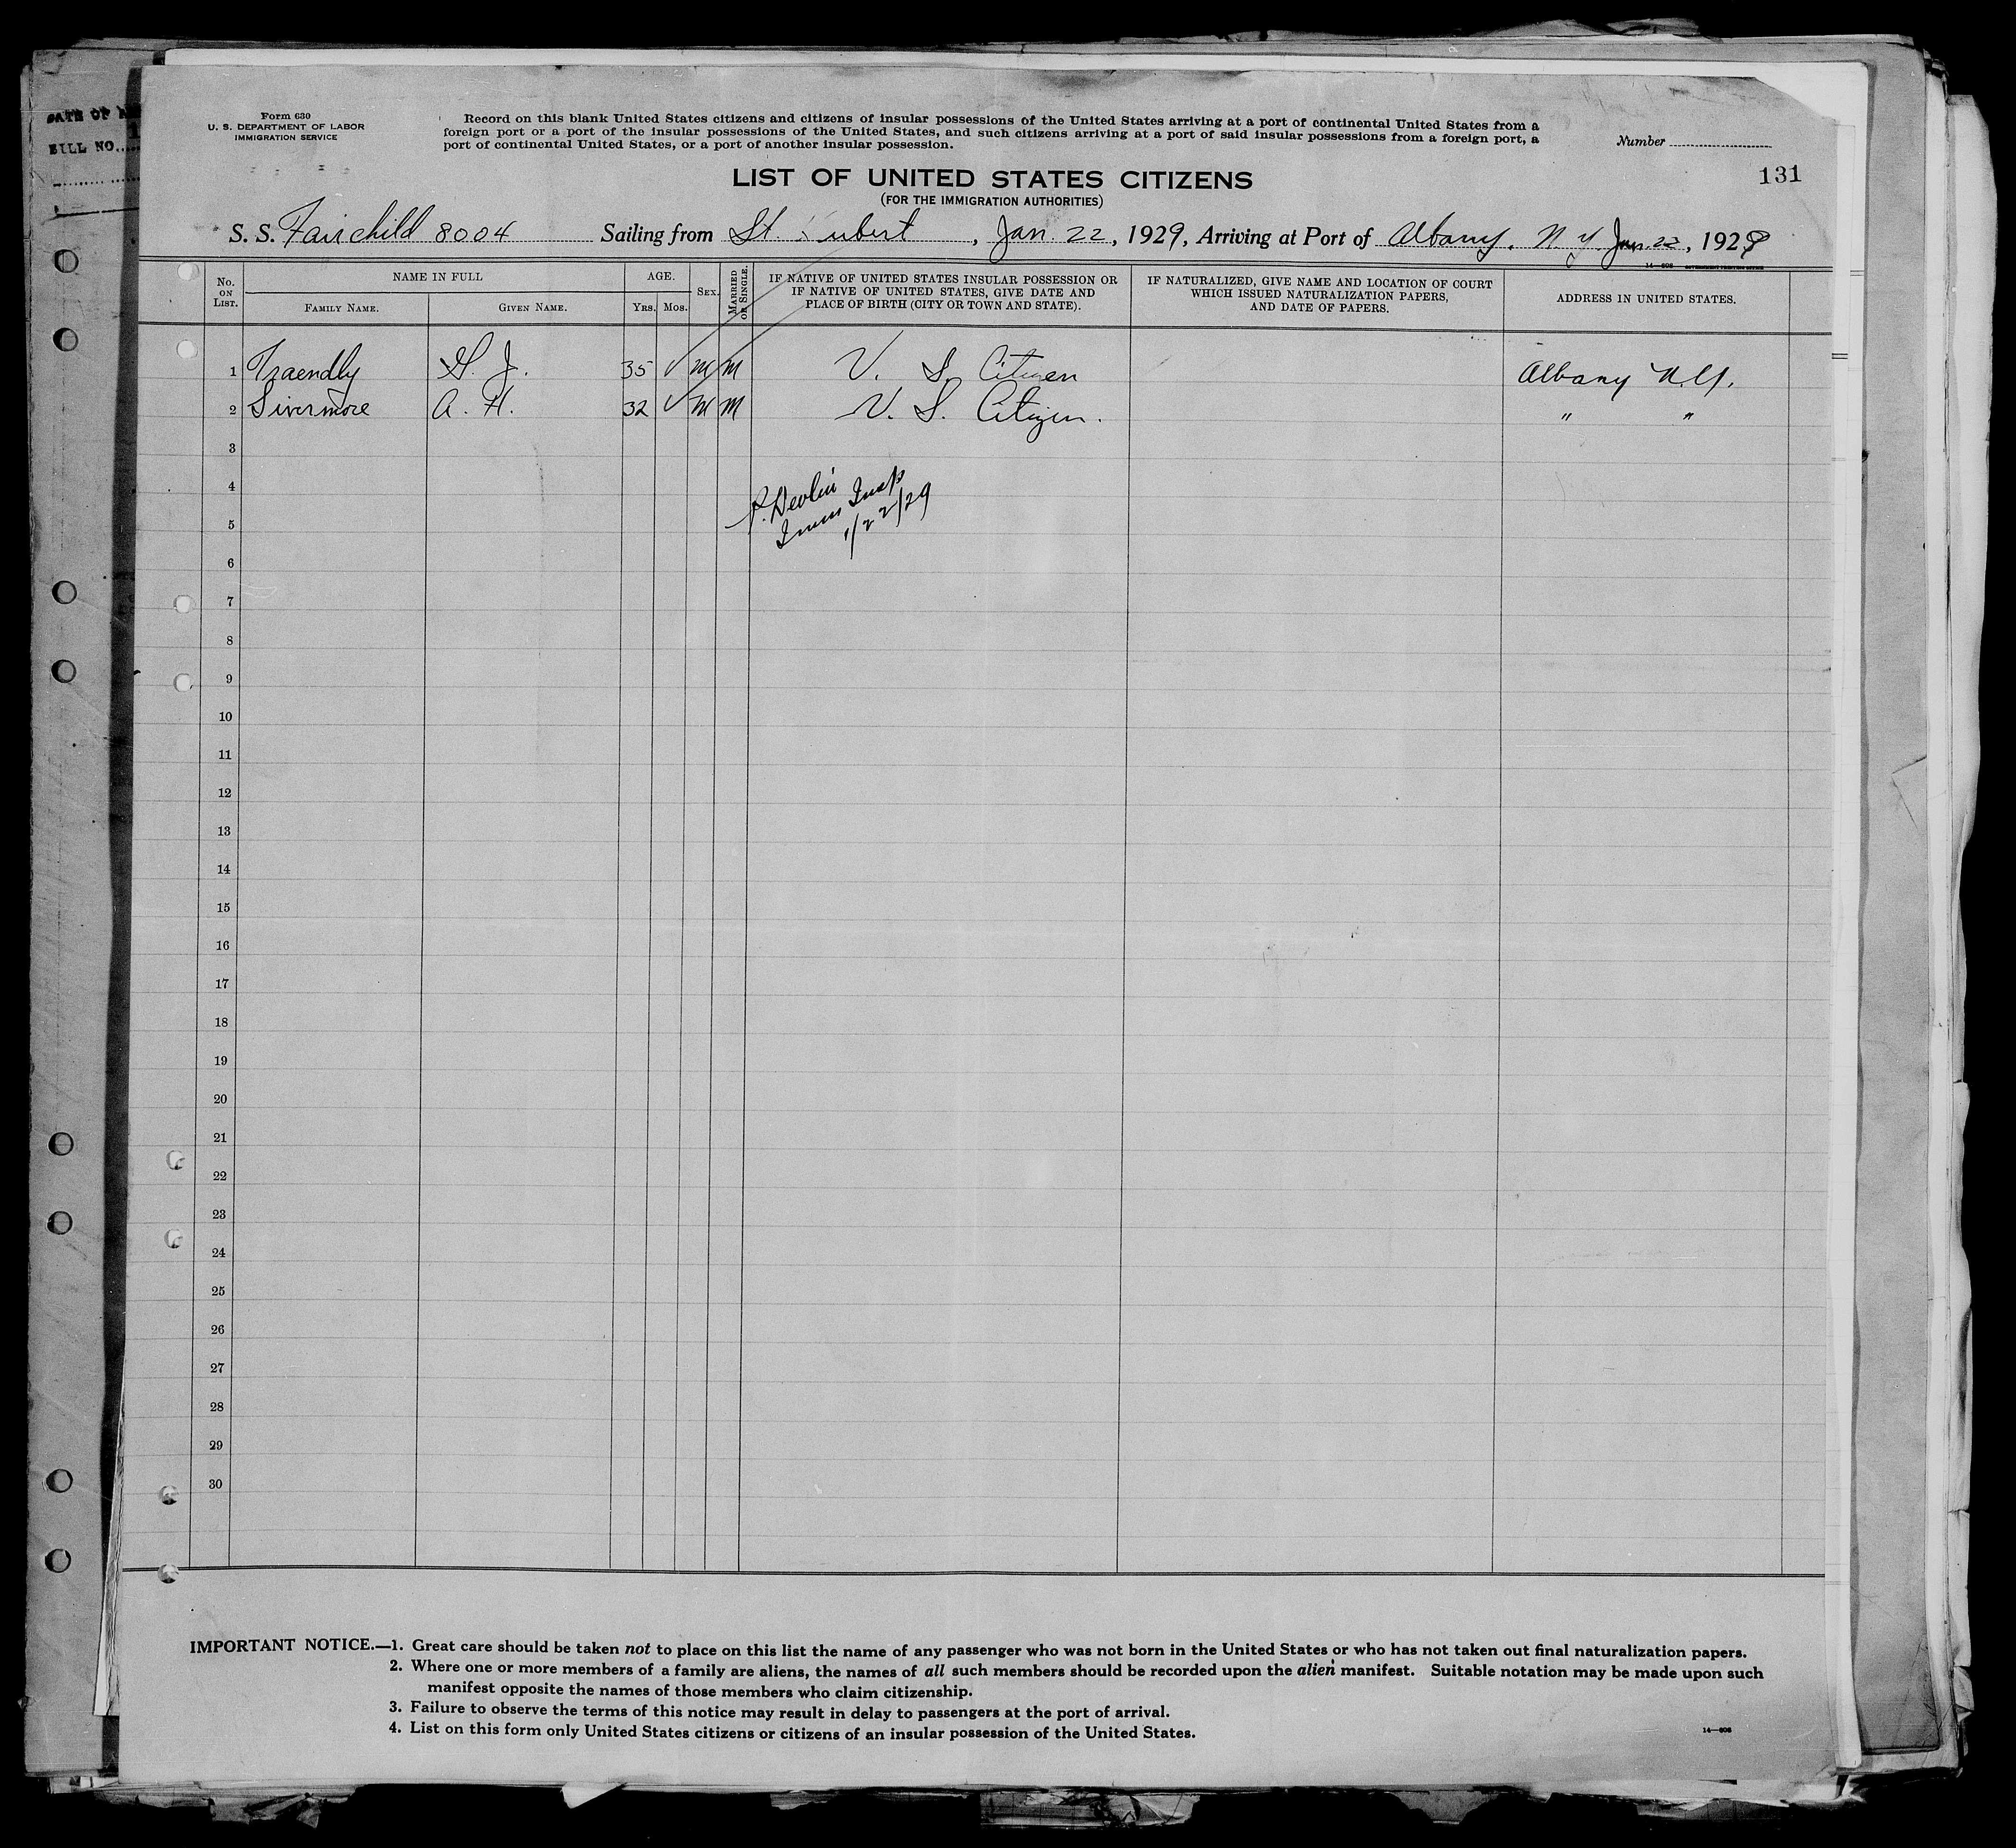 DATE OF
BILL NO.
Form 630
U. S. DEPARTMENT OF LABOR
IMMIGRATION SERVICE
Record on this blank United States citizens and citizens of insular possessions of the United States arriving at a port of continental United States from a
foreign port or a port of the insular possessions of the United States, and such citizens arriving at a port of said insular possessions from a foreign port, a
port of continental United States, or a port of another insular possession.
Number
131
LIST OF UNITED STATES CITIZENS
(FOR THE IMMIGRATION AUTHORITIES)
S. S. Fairchild 8004 Sailing from St. Hubert, Jan. 22, 1929, Arriving at Port of Albany, N. Y. Jan. 22, 1929
No. ON LIST. NAME IN FULL FAMILY NAME. GIVEN NAME. AGE. Yrs. Mos. SEX. MARRIED OR SINGLE. IF NATIVE OF UNITED STATES INSULAR POSSESSION OR IF NATIVE OF UNITED STATES, GIVE DATE AND PLACE OF BIRTH (CITY OR TOWN AND STATE). IF NATURALIZED, GIVE NAME AND LOCATION OF COURT WHICH ISSUED NATURALIZATION PAPERS, AND DATE OF PAPERS. ADDRESS IN UNITED STATES.
1 Traendly G. J. 35 ✓ M M U. S. Citizen Albany N.Y.
2 Livermore A. H. 32 ✓ M M U. S. Citizen. " "
3
4
P. Devlin
5
Imm Insp
1/22/29
6
7
8
9
10
11
12
13
14
15
16
17
18
19
20
21
22
23
24
25
26
27
28
29
30
IMPORTANT NOTICE.—1. Great care should be taken not to place on this list the name of any passenger who was not born in the United States or who has not taken out final naturalization papers.
2. Where one or more members of a family are aliens, the names of all such members should be recorded upon the alien manifest. Suitable notation may be made upon such
manifest opposite the names of those members who claim citizenship.
3. Failure to observe the terms of this notice may result in delay to passengers at the port of arrival.
4. List on this form only United States citizens or citizens of an insular possession of the United States.
14—606